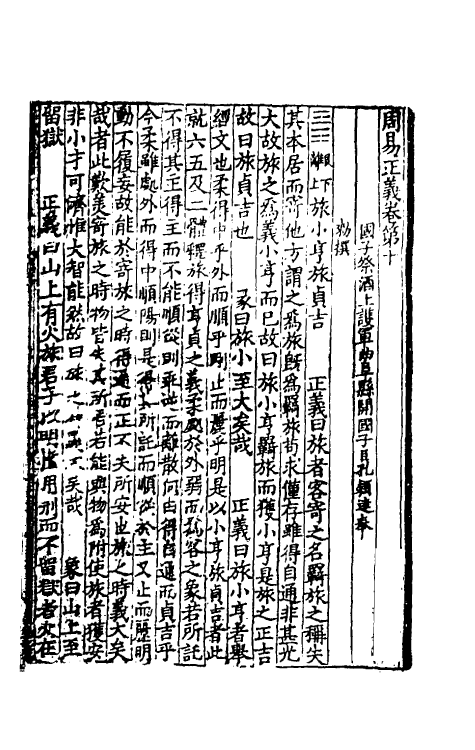 周易正義卷第十
國子祭酒上護軍曲阜縣開國子臣孔穎達奉
勑撰
下上旅小亨旅貞吉　正義曰旅者客寄之名羈旅之稱失
其本居而寄他方謂之爲旅旣爲羈旅苟求僅存雖得自通非甚光
大故旅之爲義小亨而已故曰旅小亨羈旅而獲小亨是旅之正吉
故曰旅貞吉也　彖曰旅小至大矣哉　正義曰旅小亨者舉
經文也柔得中乎外而順乎剛止而麗乎明是以小亨旅貞吉者此
就六五及二體釋旅得亨貞之義柔處於外弱而爲客之象若所託
不得其主得主而不能順從則乖逆而離散何由得自通而貞吉乎
今柔雖處外而得中順陽則是得其所託而順從於主又止而麗明
動不履妄故能於寄旅之時得通而正不失所安也旅之時義大矣
哉者此歎美寄旅之時物皆失其所居若能與物爲附使旅者獲安
非小才可濟惟大智能然故曰旅之時義大矣哉　象曰山上至
留獄　正義曰山上有火旅君子以明慎用刑而不留獄者火在